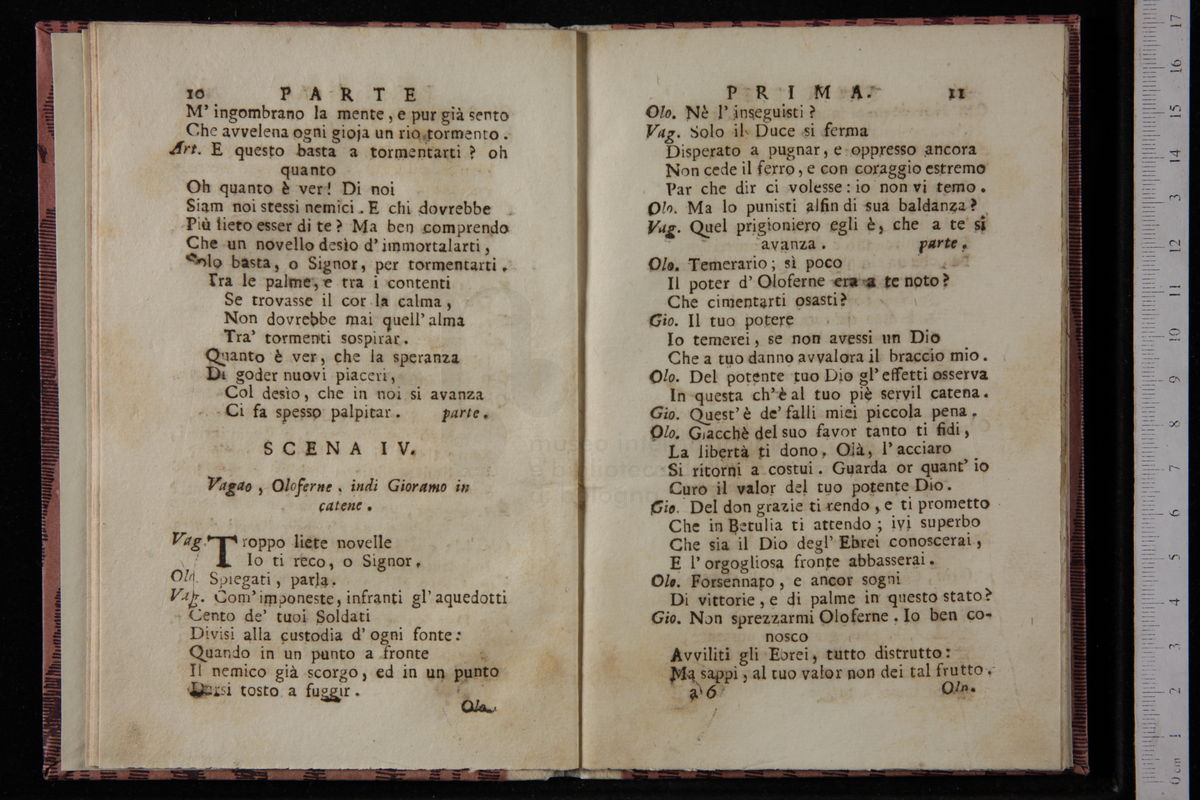 10 PARTE
M' ingombrano la mente, e pur già sento
Che avvelena ogni gioja un rio tormento.
Art. E questo basta a tormentarti? oh
quanto
Oh quanto è ver! Di noi
Siam noi stessi nemici. E chi dovrebbe
Più lieto esser di te? Ma ben comprendo
Che un novello desìo d' immortalarti,
Solo basta, o Signor, per tormentarti.
Tra le palme, e tra i contenti
Se trovasse il cor la calma,
Non dovrebbe mai quell' alma
Tra' tormenti sospirar.
Quanto è ver, che la speranza
Di goder nuovi piaceri,
Col desìo, che in noi si avanza
Ci fa spesso palpitar. parte.
SCENA IV.
Vagao, Oloferne, indi Gioramo in
catene.
Vag. Troppo liete novelle
Io ti reco, o Signor.
Olo. Spiegati, parla.
Vag. Com' imponeste, infranti gl' aquedotti
Cento de' tuoi Soldati
Divisi alla custodia d' ogni fonte:
Quando in un punto a fronte
Il nemico già scorgo, ed in un punto
Darsi tosto a fuggir.
Olo.
PRIMA. 11
Olo. Nè l' inseguisti?
Vag. Solo il Duce si ferma
Disperato a pugnar, e oppresso ancora
Non cede il ferro, e con coraggio estremo
Par che dir ci volesse: io non vi temo.
Olo. Ma lo punisti alfin di sua baldanza?
Vag. Quel prigioniero egli è, che a te si
avanza. parte.
Olo. Temerario; sì poco
Il poter d' Oloferne era a te noto?
Che cimentarti osasti?
Gio. Il tuo potere
Io temerei, se non avessi un Dio
Che a tuo danno avvalora il braccio mio.
Olo. Del potente tuo Dio gl' effetti osserva
In questa ch' è al tuo piè servil catena.
Gio. Quest' è de' falli miei piccola pena.
Olo. Giacchè del suo favor tanto ti fidi,
La libertà ti dono. Olà, l' acciaro
Si ritorni a costui. Guarda or quant' io
Curo il valor del tuo potente Dio.
Gio. Del don grazie ti rendo, e ti prometto
Che in Betulia ti attendo; ivi superbo
Che sia il Dio degl' Ebrei conoscerai,
E l' orgogliosa fronte abbasserai.
Olo. Forsennato, e ancor sogni
Di vittorie, e di palme in questo stato?
Gio. Non sprezzarmi Oloferne. Io ben co-
nosco
Avviliti gli Ebrei, tutto distrutto:
Ma sappi, al tuo valor non dei tal frutto.
a 6 Olo.
museo
biblioteca
di bologna
0 cm 1 2 3 4 5 6 7 8 9 10 11 12 13 14 15 16 17